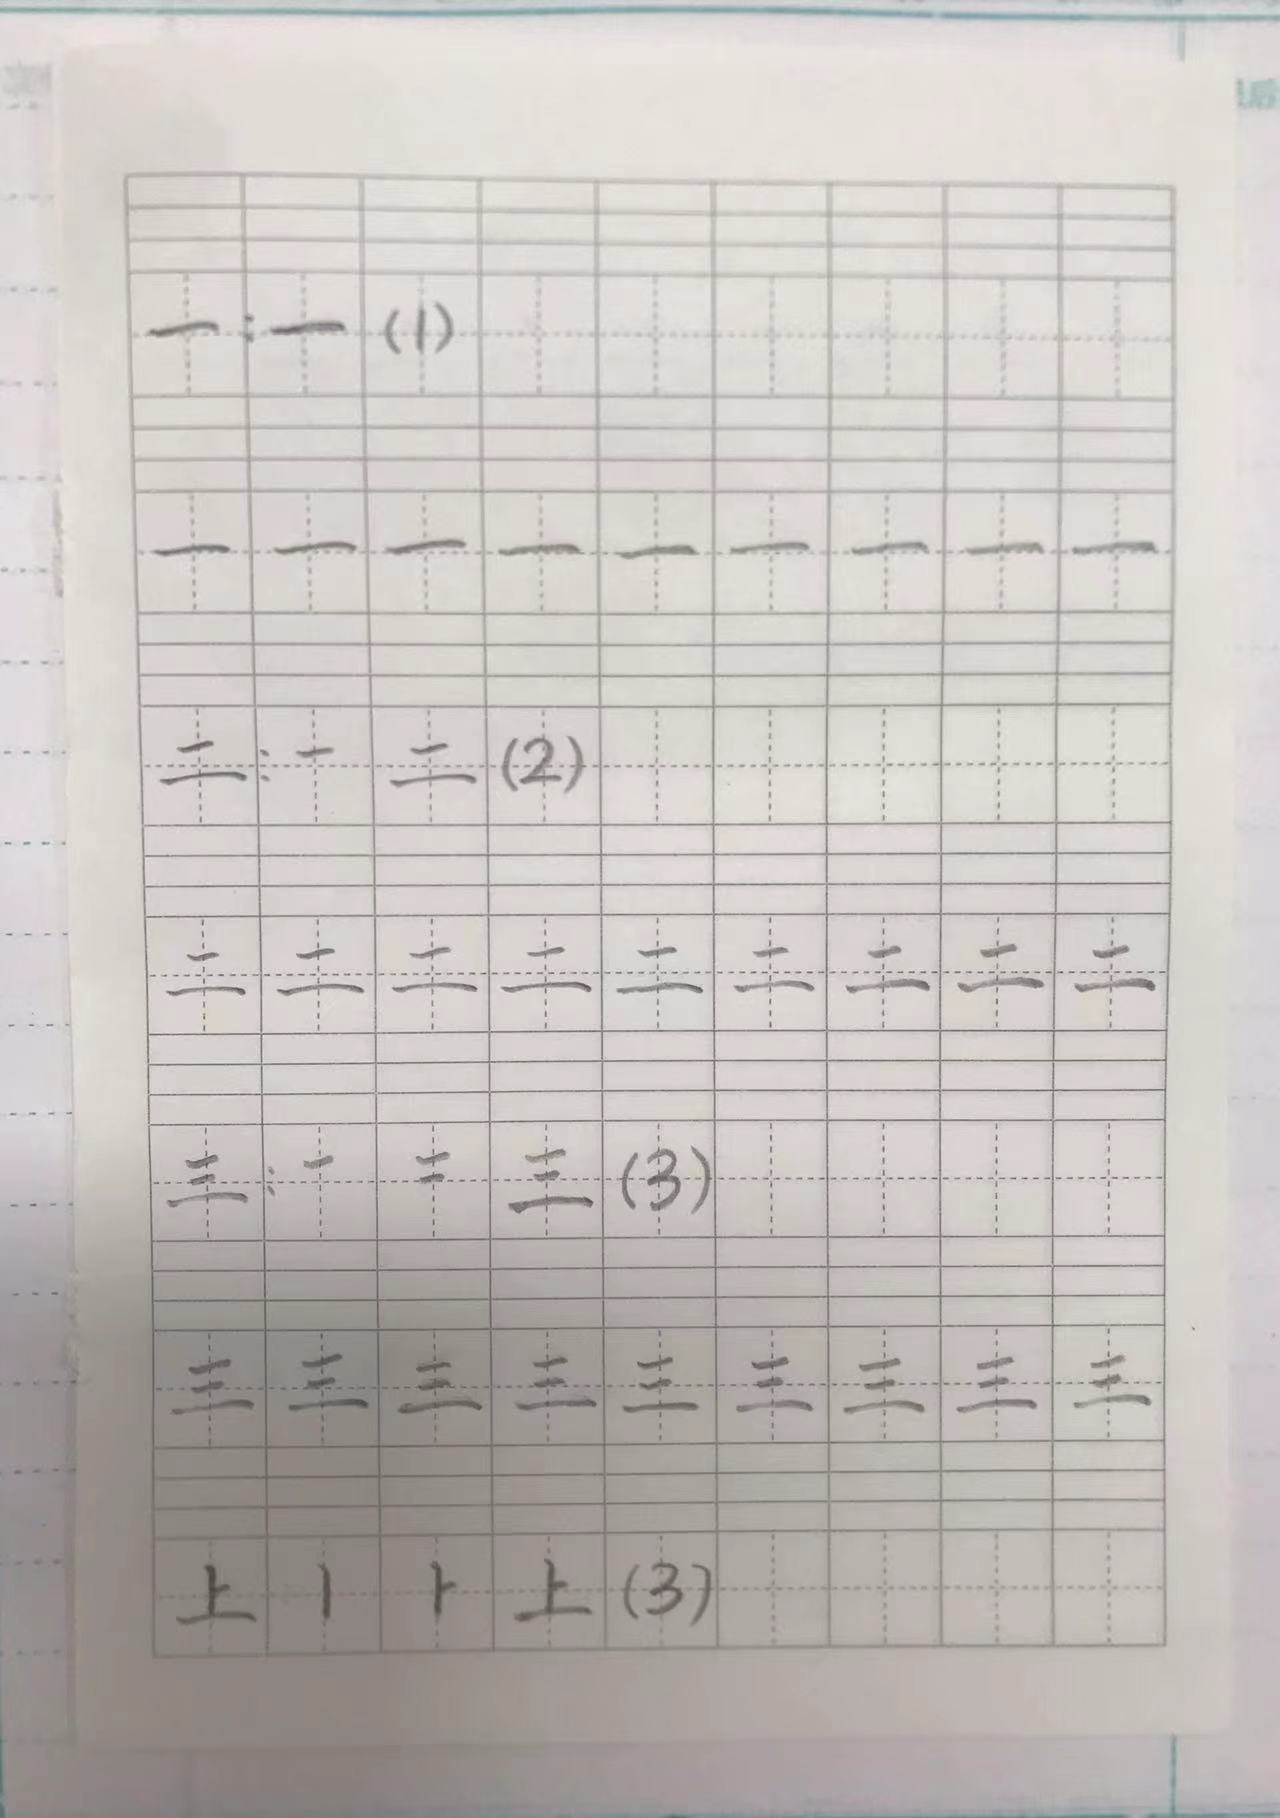 一:一(1)
一一一一一一一一一
二:一二(2)
二二二二二二二二二
三:一二三(3)
三三三三三三三三三
上丨⺊上(3)